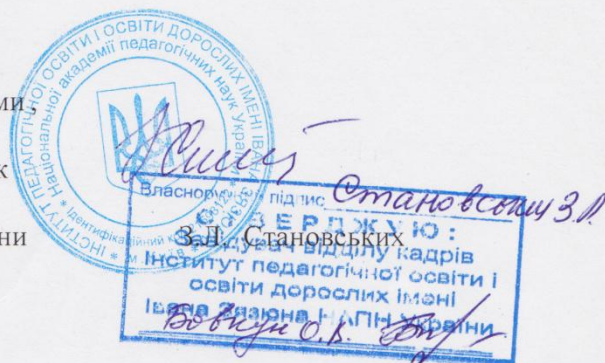 ІНСТИТУТ ПЕДАГОГІЧНОЇ ОСВІТИ І ОСВІТИ ДОРОСЛИХ ІМЕНІ ІВАНА
Національної академії педагогічних наук України
Ідентифікаційний
ми,
к
ни
З.Л. Становських
Власноручний підпис Становських З.Л.
СТВЕРДЖУЮ:
Завідувач відділу кадрів
Інститут педагогічної освіти і
освіти дорослих імені
Івана Зязюна НАПН України
Вовкун О.В.